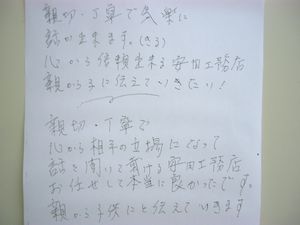 親切・丁寧で気楽に
話が出来ます。(きる)
心から信頼出来る安田工務店
親から子に伝えていきたい!
親切・丁寧で
心から相手の立場になって
話を聞いて頂ける安田工務店
お任せして本当に良かったです。
親から子供にと伝えていきます